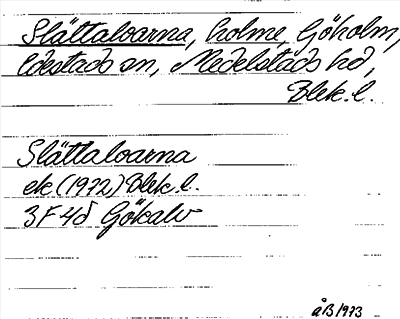 Slättaloarna, holme, Göholm,
Edestads sn, Medelstads hd,
Blek. l.
Slättaloarna
ek (1972) Blek. l.
3F 4d Gökalv
åB 1973